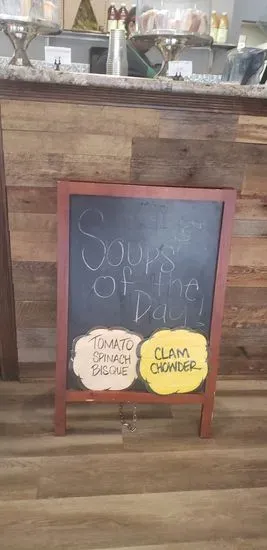 Soups
of the
Day!
TOMATO
SPINACH
BISQUE
CLAM
CHOWDER